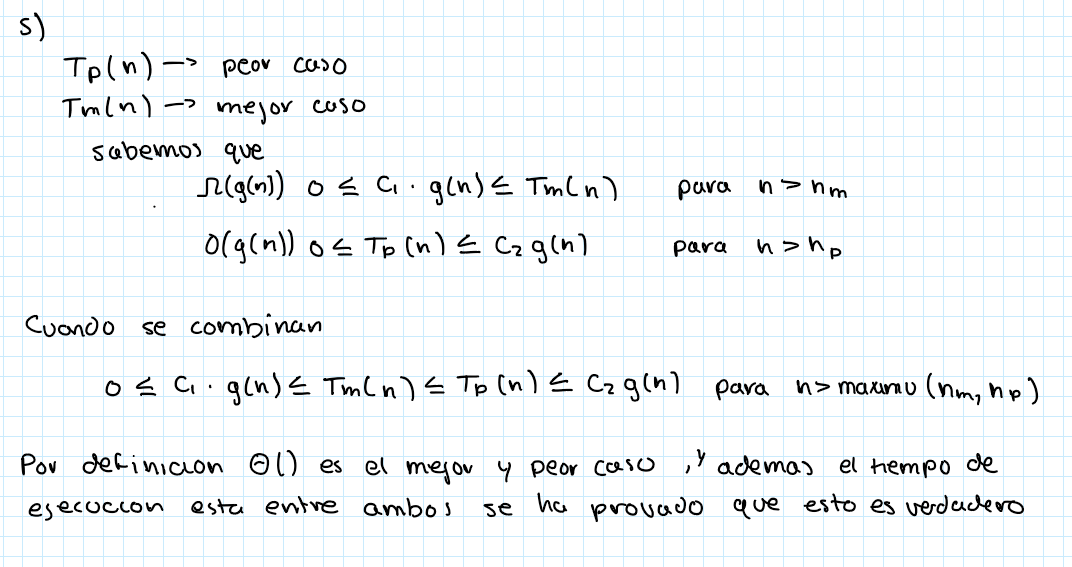 5)
Tp(n) -> peor caso
Tm(n) -> mejor caso
sabemos que
Ω(g(n)) 0 ≤ C₁ · g(n) ≤ Tm(n) para n > nm
O(g(n)) 0 ≤ Tp(n) ≤ C₂ g(n) para n > np
Cuando se combinan
0 ≤ C₁ · g(n) ≤ Tm(n) ≤ Tp(n) ≤ C₂ g(n) para n > maximo (nm, np)
Por definicion Θ() es el mejor y peor caso , y ademas el tiempo de
ejecuccion esta entre ambos se ha provado que esto es verdadero